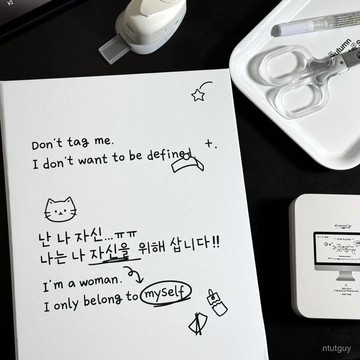 Don't tag me.
I don't want to be defined
난 나 자신...ㅠㅠ
나는 나 자신을 위해 삽니다!!
I'm a woman.
I only belong to myself
.ntutguy